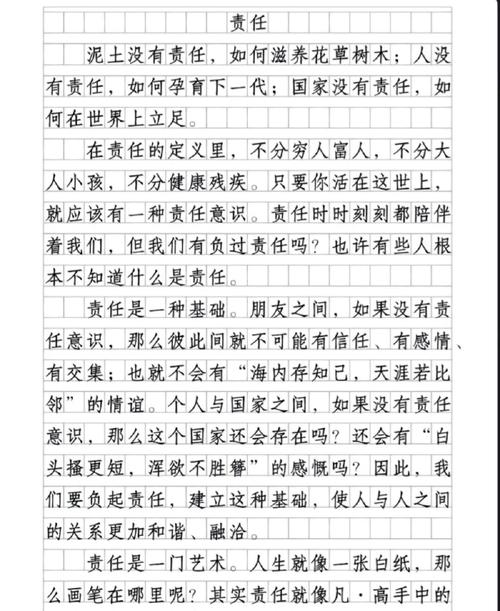 责任
泥土没有责任，如何滋养花草树木；人没
有责任，如何孕育下一代；国家没有责任，如
何在世界上立足。
在责任的定义里，不分穷人富人，不分大
人小孩，不分健康残疾。只要你活在这世上，
就应该有一种责任意识。责任时时刻刻都陪伴
着我们，但我们有负过责任吗？也许有些人根
本不知道什么是责任。
责任是一种基础。朋友之间，如果没有责
任意识，那么彼此间就不可能有信任、有感情、
有交集；也就不会有“海内存知己，天涯若比
邻”的情谊。个人与国家之间，如果没有责任
意识，那么这个国家还会存在吗？还会有“白
头搔更短，浑欲不胜簪”的感慨吗？因此，我
们要负起责任，建立这种基础，使人与人之间
的关系更加和谐、融洽。
责任是一门艺术。人生就像一张白纸，那
么画笔在哪里呢？其实责任就像凡·高手中的